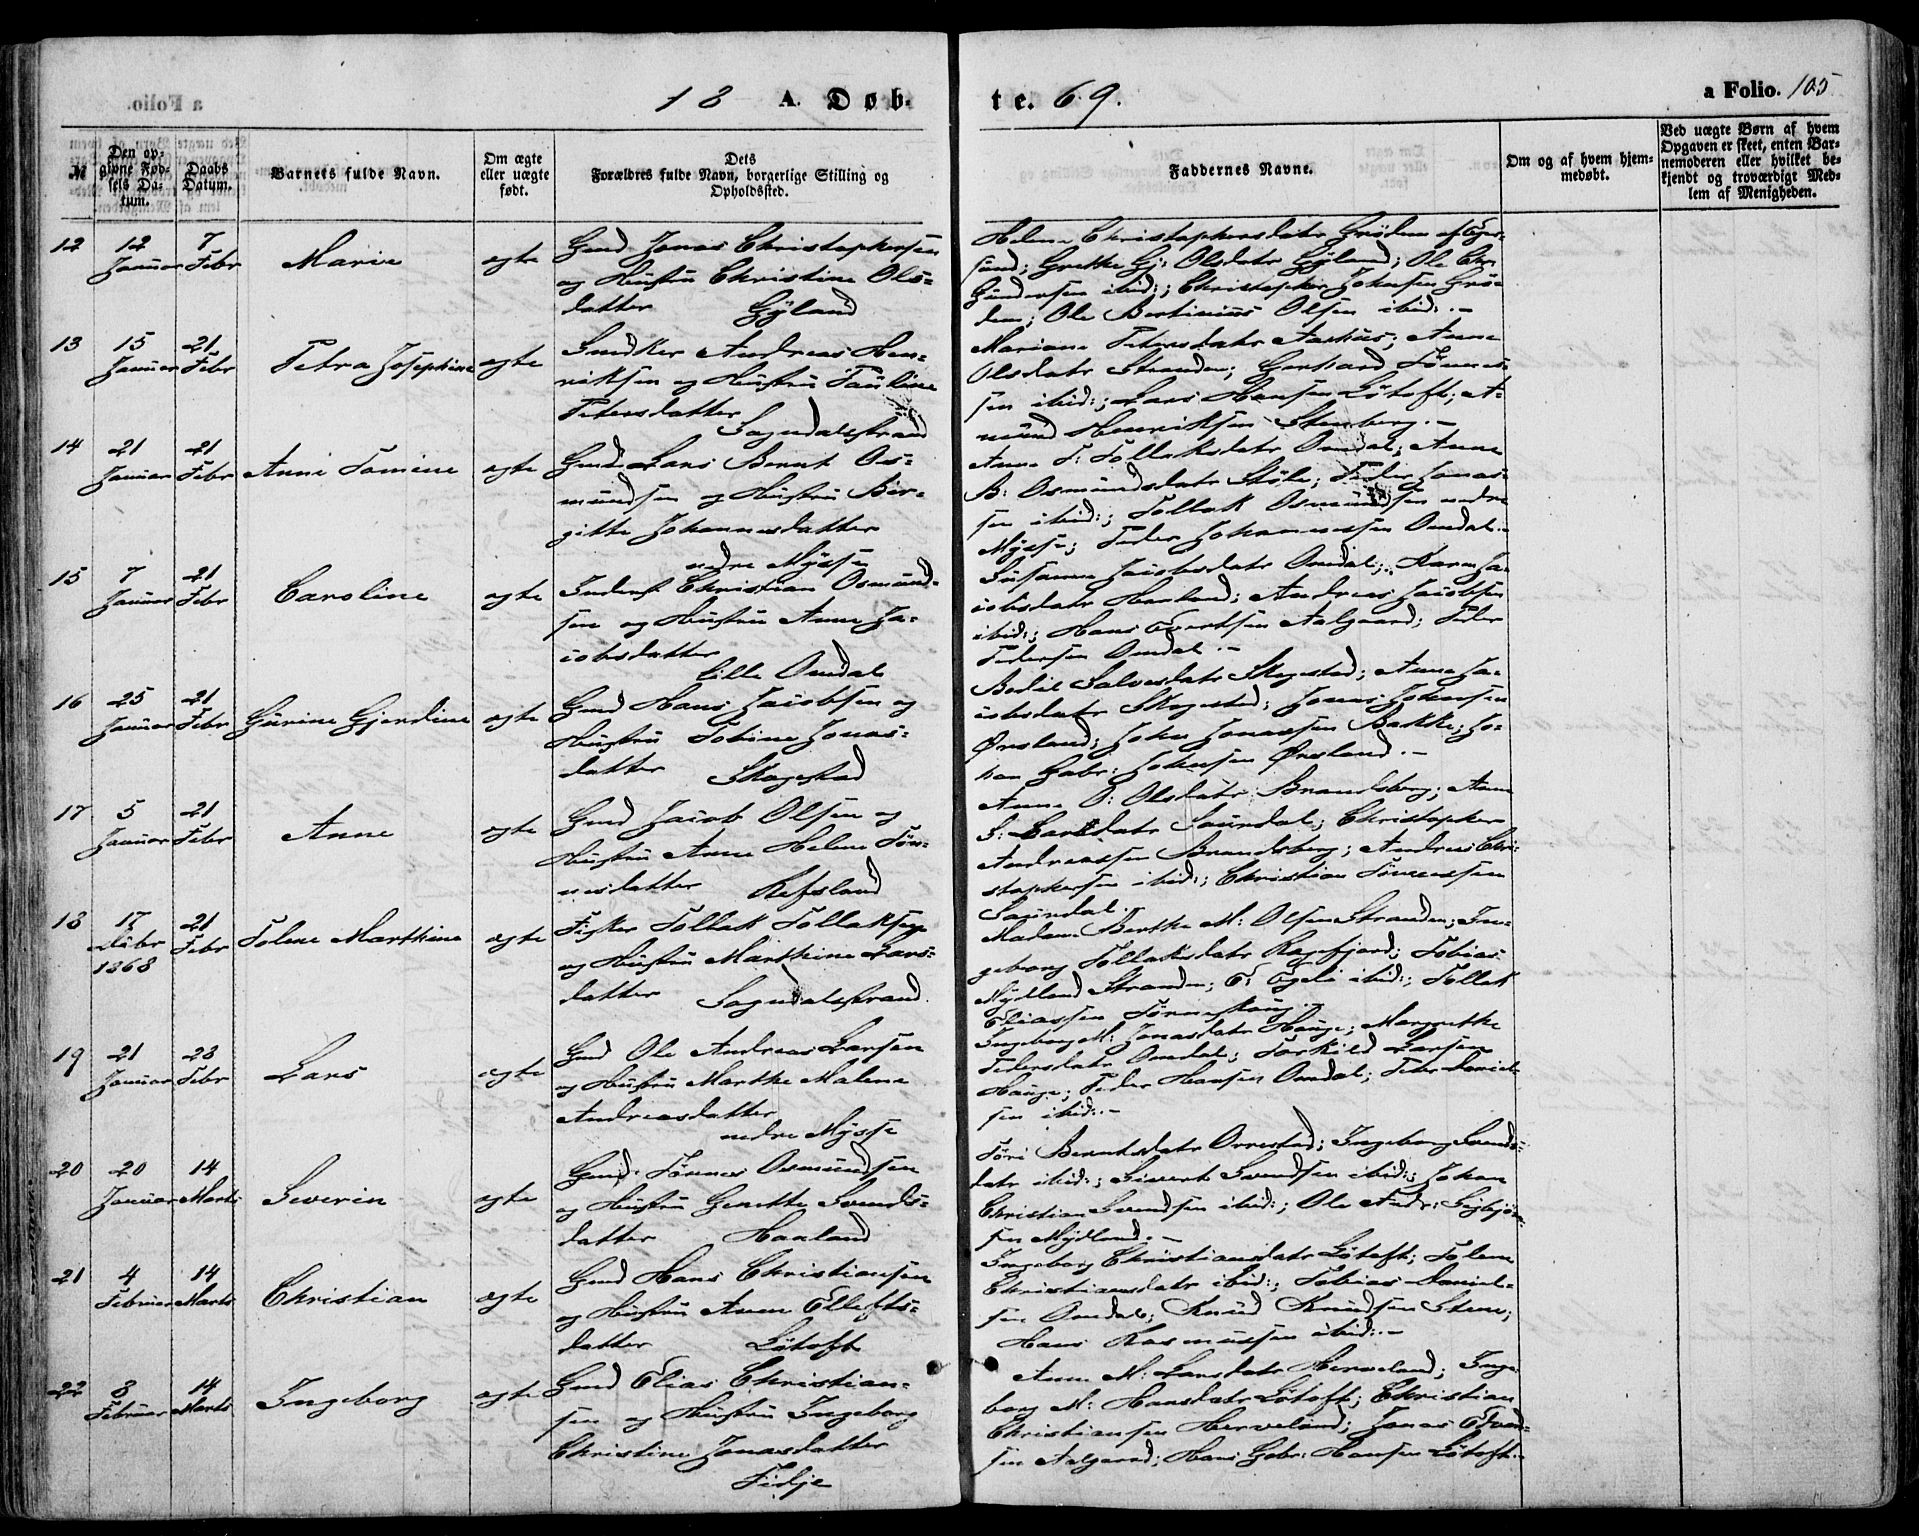 18 A. Døb-
te. 69.
a Folio. 105
№
Den op-
givne Fød-
sels Da-
tum.
Daabs
Datum.
Barnets fulde Navn.
Om ægte
eller uægte
født.
Dets
Forældres fulde Navn, borgerlige Stilling og
Opholdssted.
Faddernes Navne.
Om og af hvem hjem-
medøbt.
Ved uægte Børn af hvem
Opgaven er skeet, enten Bar-
nemoderen eller hvilket be-
kjendt og troværdigt Med-
lem af Menigheden.
12 12 Januar 7 Febr Marie ægte
Gmd Jonas Christophersen
og Hustru Christine Ols-
datter Gyland
Helene Christophersdatr Grøden af Eger-
sund; Grethe Gj: Olsdatr Gyland; Ole Chr:
Gundersen ibid:; Christopher Johnsen Grø-
den; Ole Bertinius Olsen ibid:.-
13 15 Januar 21 Febr Petra Josephine ægte
Snedker Andreas Hen-
riksen og Hustru Pauline
Petersdatter
Sogndalsstrand
Mariane Petersdatr Aarhus; Anne
Olsdatr Stranden; Gerhard Tønnes-
sen ibid:; Lars Hansen Løtoft; A-
mund Henriksen Stenberg.-
14 21 Januar 21 Febr Anne Tomine ægte
Gmd Lars Bernt Os-
mundsen og Hustru Ber-
gitte Johannesdatter
nedre Mysse
Anne T: Tollaksdatr Omdal; Anne
B: Osmundsdatr Støle; Peder Jonas-
sen ibid:; Tollak Osmundsen nedre
Mysse; Peder Johannessen Omdal.-
15 7 Januar 21 Febr Caroline ægte
Inderst Christian Osmund-
sen og Hustru Anne Ja-
cobsdatter
Lille Omdal
Susanne Jacobsdatr Omdal; Karen Ja-
cobsdatr Haaland; Andreas Jacobsen
ibid:; Hans Evertsen Aalgaard; Peder
Pedersen Omdal.-
16 25 Januar 21 Febr Gurine Gjerdine ægte
Gmd Hans Jacobsen og
Hustru Tobine Jonas-
datter Skogestad
Bodil Salvesdatr Skogestad; Anne Ja-
cobsdatr Skogestad; Jonas Johnsen
Ørsland; John Jonassen Bakke; Jo-
han Gabr: Johnsen Ørsland.-
17 5 Januar 21 Febr Anne ægte
Gmd Jacob Olsen og
Hustru Anne Helene Tøn-
nesdatter Refsland
Anne O: Olsdatr Brandsberg; Anne
S: Larsdatr Saurdal; Christopher
Andreassen Brandsberg; Andreas Chri-
stophersen ibid:; Christian Tønnessen
Saurdal.
18 17 Debr 1868 21 Febr Tolene Marthine ægte
Fisker Tollak Tollaksen
og Hustru Marthine Lars-
datter Sogndalsstrand.
Madam Berthe M: Olsen Stranden; In-
geborg Tollaksdatr Ragefjord; Tobias
Mydland Stranden; E: Egeli ibid:; Tollak
Eliassen Tønneshaug.
19 21 Januar 28 Febr Lars ægte
Gmd Ole Andreas Larsen
og Hustru Marthe Malene
Andreasdatter
nedre Mysse
Ingeborg M: Jonasdatr Hauge; Margrethe
Pedersdatr Omdal; Torkild Larsen
Hauge; Peder Hansen Omdal; Peder Daniel-
sen ibid:.-
20 20 Januar 14 Marts Severin ægte
Gmd: Tønnes Osmundsen
og Hustru Genette Svends-
datter Haaland
Tori Berntsdatr Orrestad; Ingeborg Svends-
datr ibid:; Sivert Svendsen ibid:; Johan
Christian Svendsen ibid:; Ole Andr: Sigbjørn-
sen Mydland.-
21 4 Februar 14 Marts Christian ægte
Gmd Hans Christiansen
og Hustru Anne Ellefts-
datter Løtoft
Ingeborg Christiansdatr Løtoft; Tolene
Christiansdatr ibid:; Tobias Daniel-
sen Omdal; Knud Knudsen Stene;
Hans Rasmussen ibid:.-
22 8 Februar 14 Marts Ingeborg ægte
Gmd Elias Christian-
sen og Hustru Ingeborg
Christine Jonasdatter
Fidje
Anne M: Larsdatr Herveland; Inge-
borg M: Hansdatr Løtoft; Christian
Christiansen Herveland; Jonas Edvard-
sen Aalgaard; Hans Gabr: Hansen Løtoft.-